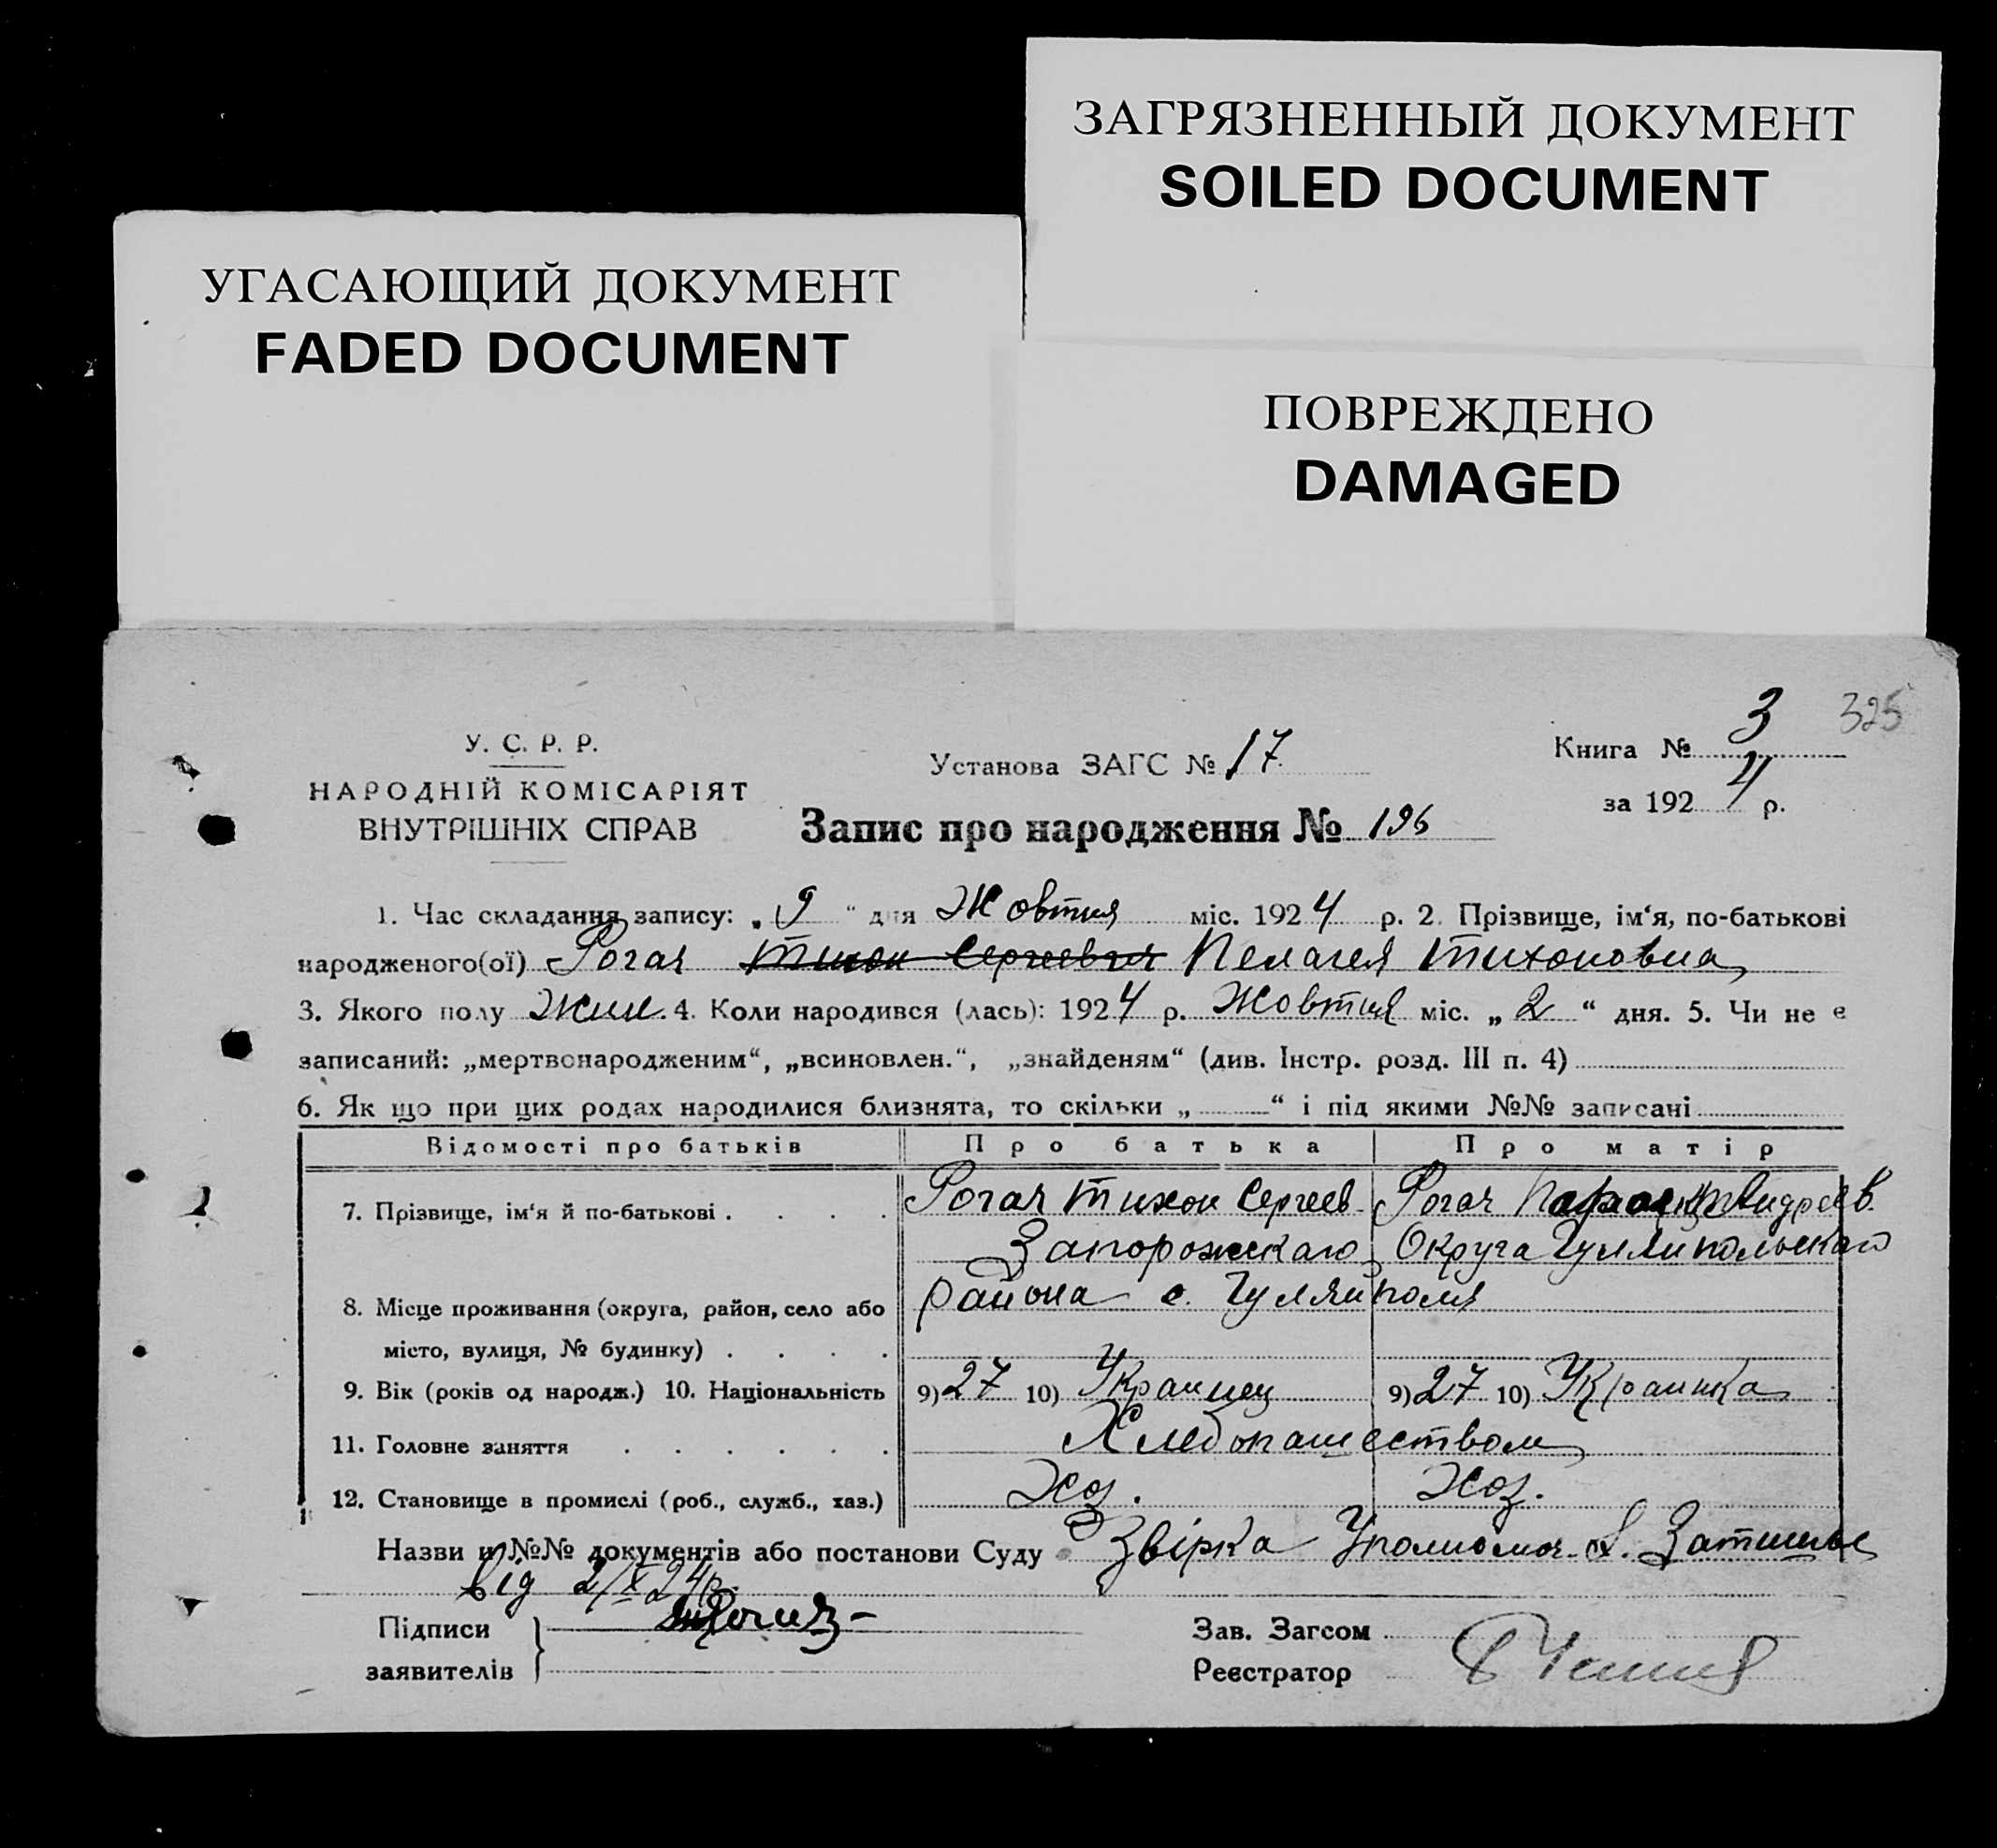 ЗАГРЯЗНЕННЫЙ ДОКУМЕНТ
SOILED DOCUMENT
УГАСАЮЩИЙ ДОКУМЕНТ
FADED DOCUMENT
ПОВРЕЖДЕНО
DAMAGED
325
У. С. Р. Р.
НАРОДНІЙ КОМІСАРІЯТ
ВНУТРІШНІХ СПРАВ
Установа ЗАГС № 17
Книга № 3
за 1924 р.
Запис про народження № 196
1. Час складання запису: „9“ дня Жовтня міс. 1924 р. 2. Прізвище, ім‘я, по-батькові
народженого(ої) Рогач Тихон Сергеевич Пелагея Тихоновна
3. Якого полу Жин. 4. Коли народився (лась): 1924 р. Жовтня міс. „2“ дня. 5. Чи не є
записаний: „мертвонародженим“, „всиновлен.“, „знайденям“ (див. Інстр. розд. III п. 4)
6. Як що при цих родах народилися близнята, то скільки „ “ і під якими №№ записані
Відомості про батьків Про батька Про матір
7. Прізвище, ім‘я й по-батькові . . . . Рогач Тихон Сергеев. Рогач Андреев.
Запорожскаго Округа Гуляйпольскаго
8. Місце проживання (округа, район, село або района с. Гуляйполя
місто, вулиця, № будинку) . . . .
9. Вік (років од народж.) 10. Національність 9) 27 10) Украинец 9) 27 10) Украинка
11. Головне заняття . . . . . . Хлебопашеством
12. Становище в промислі (роб., служб., хаз.) Хоз. Хоз.
Назви и №№ документів або постанови Суду Звірка Уполномоч. с. Затишье
від 2/X 24р.
Підписи
заявителів
Зав. Загсом
Реєстратор